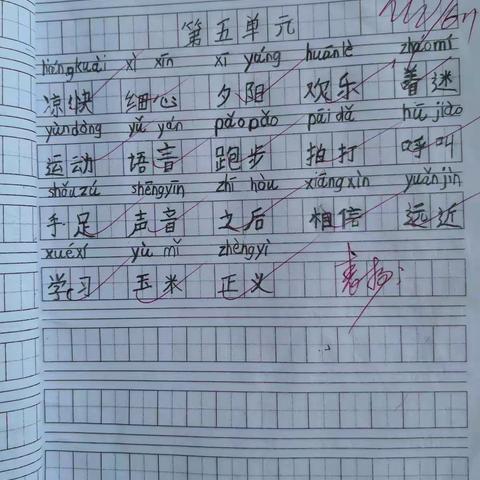 第五单元
liángkuài xì xīn xī yáng huānlè zháomí
凉快 细心 夕阳 欢乐 着迷
yùndòng yǔ yán pǎopǎo pāidǎ hū jiào
运动 语言 跑步 拍打 呼叫
shǒuzú shēngyīn zhī hòu xiāngxìn yuǎnjìn
手足 声音 之后 相信 远近
xuéxí yù mǐ zhèngyì
学习 玉米 正义
表扬